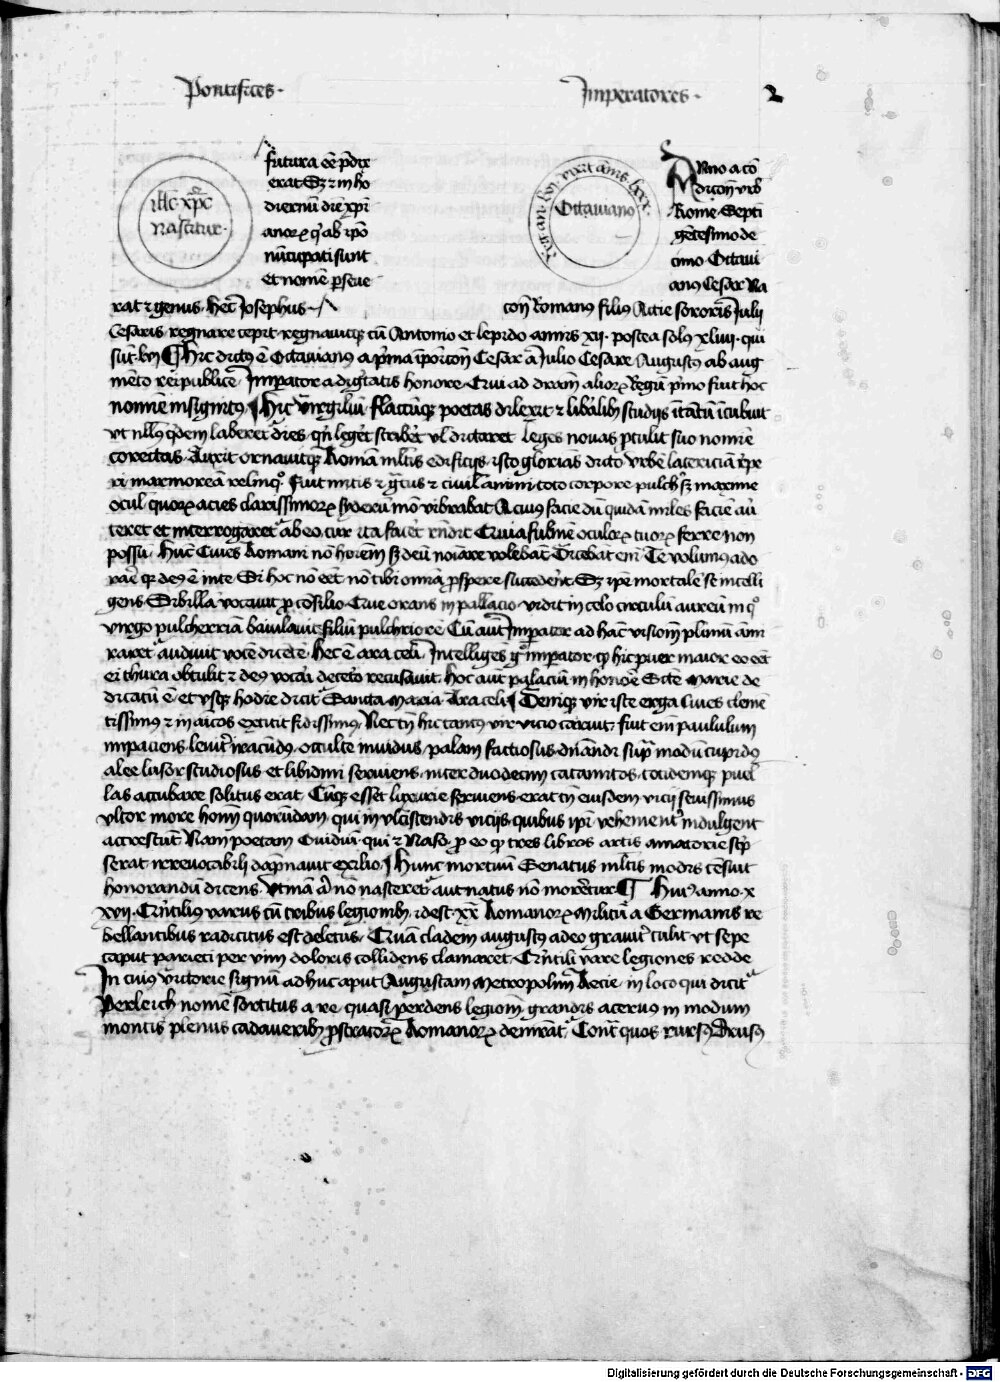 Pontifices.
Imperatores.
2
Ih̄c xp̄c
Nascitur.
futura eē p̄dix
erat Sz et in ho
diernū diē xpi
anorꝝ qͥ ab ipō
nūcupati sunt
et nomē perseue
rat et genus. hec Josephus
regn an. lvij vixit annis lxxx.
Octauiano
Anno a cō
diton vrb
Rome Septi
gētesimo de
cimo Octaui
anꝰ Cesar Na
con Romanꝰ filiꝰ Actie sororis Julij
Cesaris regnare cepit. regnauitqꝫ cū Antonio et lepido annis xij. postea solꝰ xliiij. qui
sūt. lvj ¶ Hic dictꝰ ē Octauianus a pͥma īpōicon Cesar a Julio Cesare Augustꝰ ab aug
mēto reipublice. Imperator a dignitatis honore. Cui ad dram alioꝝ Regū pͥmo fuit hoc
nomē insignitꝰ. ¶ Hic Virgiliū flaccūqꝫ poetas dilexit et libalibꝫ studijs
vt nllꝰ qͥdem laberet dies qn legēt scribet vl dictaret leges nouas ptulit suo nomīe
correctas. Auxit ornauitqꝫ Romā mltis edificijs. isto glorians dicto Vrbē latericiā rͤpe
ri marmoreā relinqͦ. Fuit mitis et gͣtus et ciuilͥ animi toto corpore pulchͬ sꝫ maxime
ocul quoꝝ acies clarissimoꝝ syderū mō vibrabat A cuiꝰ facie dū quidā miles faciē auͥ
teret et interrogaretͬ ab eo cur ita facͤet rn̄dit Quia fulmē oculoꝝ tuoꝝ ferre non
possū. Hūc Ciues Romani nō hoīem sꝫ deū noīare volebāt Dicebāt em̄ Te volumꝰ ado
rare qꝛ deꝰ ē in te Si hoc nō eēt nō tibi omīa prspere succederēt Sꝫ ipe mortalē se intelli
gens. Sibillā vocauit pro cōsilio. Que orans in pallacio vidit in celo circulū aureū in qͦ
virgo pulcherriā baiulauit filiū pulchriorē Cū aūt Imperator ad hāc visionē plimū am
raretͬ audiuit vocē dicētē. Hec ē ara celi. Intelligēs gͦ imperator qꝫ hic puer maior eo eēt
ei thura obtulit et deꝰ vocari decetͤo recusauit. Hoc aūt palaciū in honorē Scte Marie de
dicatū ē et vsqꝫ hodie dicitͬ Sancta Maria Araceli ¶ Deniqꝫ vir iste erga Ciues clemē
tissimꝰ et in aīcos extitit fidissimꝰ. Nec tn̄ hic tantꝰ vir vicio caruit. fuit em̄ paululum
impaciens leuitͬ iracūdꝰ. occulte inuidus. palam factiosus. dn̄andi supͣ modū cupidꝰ
alee lusor studiosus. et libidini seruiens. inter duodecim catamitos. totidemqꝫ puel
las accubare solitus erat. Cūqꝫ esset luxurie seruiens. erat tn̄ eiusdem vicij seuissimus
vltor more homū quorūdam qui in vlciscendis vicijs quibus ipī vehementͬ indulgent
accrescūt Nam poetam Ouidiū qui et Naso. pro eo qꝫ tres libros artis amatorie scͥp
serat irreuocabili dāpnauit exilio. ¶ Hunc mortuū Senatus mltis modis cēsuit
honorandū dicens. Vtinā aut nō nasceretͬ aut natus nō morͤetur ¶ Huiꝰ anno. x
xvij. Qntiliꝰ varus cū tribus legionibꝫ id est. xx Romanoꝝ Militū a Germanis re
bellantibus radicitus est deletus. Quā cladem augustꝰ adeo grauitͬ tulit vt sepe
caput parieti per vim doloris collidens clamaret Qntili vare legiones redde
In cuiꝰ Victorie signū adhuc aput Augustam Metropolim Recie in loco qui dicitͬ
Perleich nomē sortitus a re. quasi perdens legionē grandis aceruꝰ in modum
montis plenus cadaueribꝫ prostratoꝝ Romanoꝝ demīratͬ Contͣ quos rursꝰ Drusꝰ
Digitalisierung gefördert durch die Deutsche Forschungsgemeinschaft - DFG